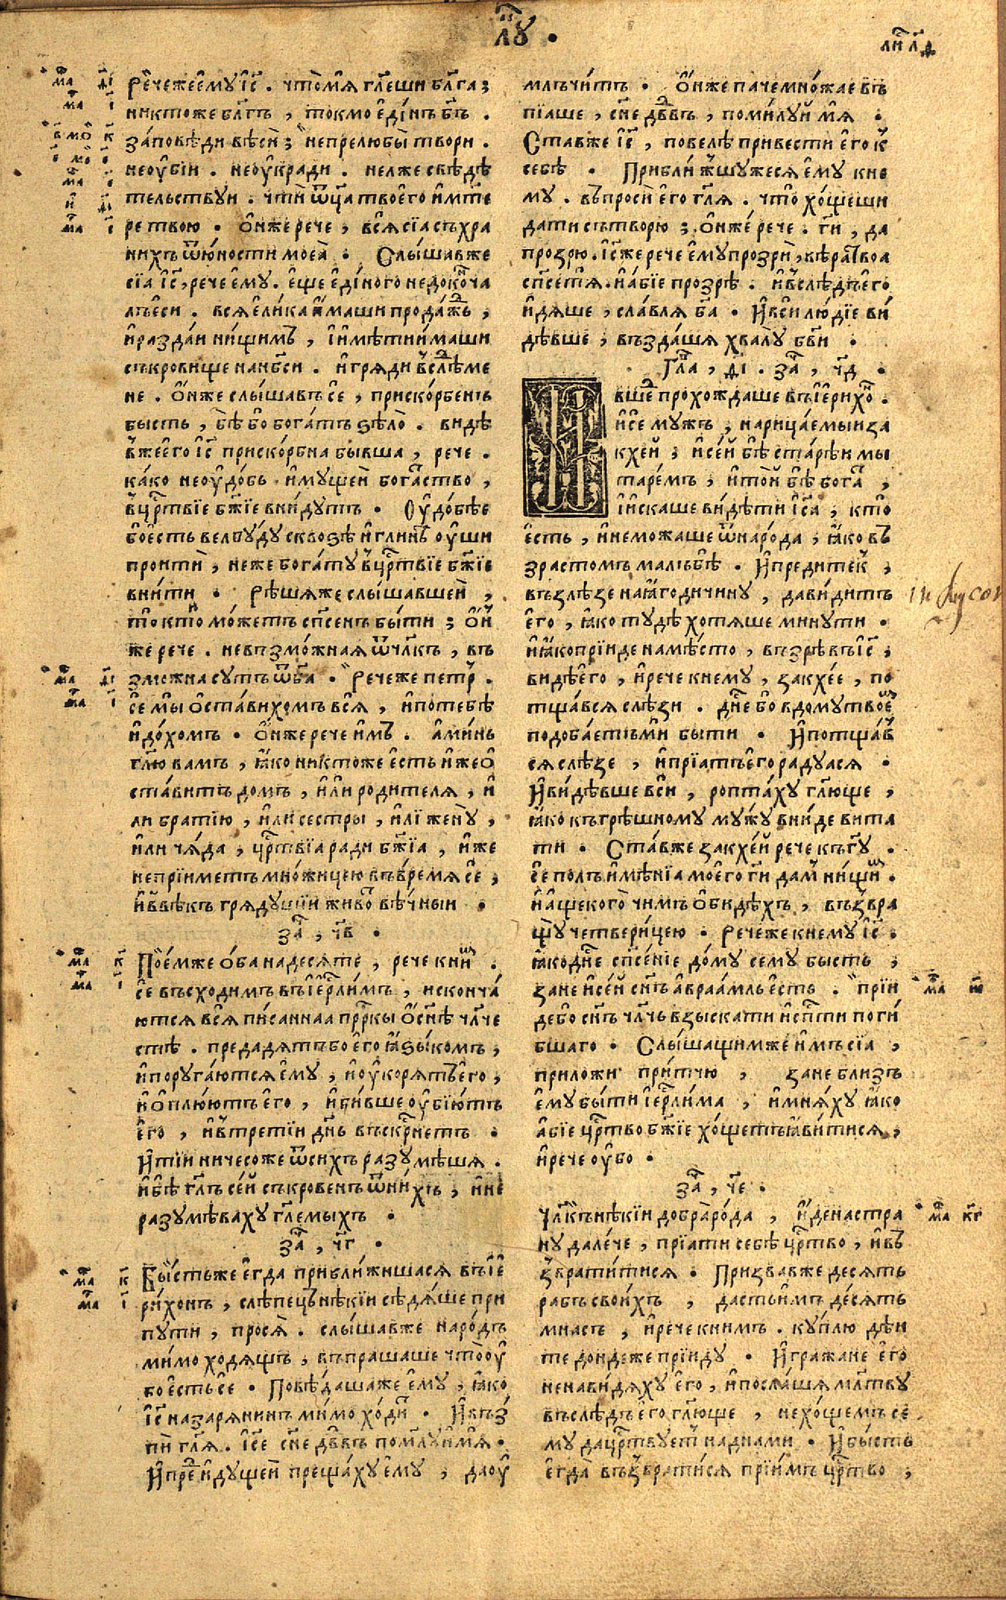 лꙋ҃ .
лиⷭ л҃д
Рече же емꙋ і҃с . что мѧ гл҃еши бл҃га ;
никтоже бл҃гъ , токмо единъ бг҃ъ .
заповѣди вѣси ; не прелюбы твори .
не оубїи . не оукради . не лже свѣдѣ
тельствꙋи . чти ѿц҃а твоего и мт҃е
ре твою . Онже рече , всѧ сїа съхра
нихъ ѿ юности моеа . Слышавже
сїа і҃с , рече емꙋ . еще единого не доконча
лъ еси . всѧ елика имаши продажь ,
и раздаи нищимъ , и имѣти имаши
съкровище на нб҃си . и грѧди въслѣд ме
не . Онже слышавъ се , прискорбенъ
бысть , бѣ бо богатъ ѕѣло . видѣ
вже его і҃с прискорбна бывша , рече .
како не оудобь имꙋщеи богатство ,
в црⷭтвїе бж҃їе внидꙋтъ . Оудобѣе
бо есть велбꙋдꙋ сквозѣ иглинѣ оуши
проити , неже богатꙋ в црⷭтвїе бж҃їе
внити . Рѣшѧже слышавшеи ,
то кто можетъ спс҃енъ быти ; Он
же рече . невъзможнаѧ ѿ чл҃къ , въ
зможна сꙋть ѿ б҃а . Рече же петръ .
се мы оставихомъ всѧ , и по тебѣ
идохомъ . Онже рече имъ . аминь
гл҃ю вамъ , ꙗко никтоже есть иже о
ставитъ домъ , или родителѧ , и
ли братїю , или сестры , или женꙋ ,
или чѧда , црⷭтвїа ради бж҃їа , иже
не прїиметъ множицею въ времѧ се ,
и в вѣкъ грѧдꙋщїи живо вѣчныи .
заⷱ , ч҃в .
Поемже обанадесѧте , рече к ни .
се въсходимъ въ іер҃лимъ , и сконча
ютсѧ всѧ писаннаа прⷪркы о сн҃ѣ чл҃че
стѣ . предадѧтъ бо его ꙗзыкомъ ,
и порꙋгаютсѧ емꙋ , и оукорѧтъ его ,
и оплюютъ его , и бивше оубїютъ
его , и в третїи днь въскрⷭнетъ .
И тїи ничесоже ѿ сихъ разꙋмѣшѧ .
и бѣ гл҃ъ сеи съкровенъ ѿ нихъ , и не
разꙋмѣвахꙋ гл҃емыхъ .
заⷱ , ч҃г .
Бысть же егда приближишасѧ въ іе
рихонъ , слѣпецъ нѣкїи сѣдѧше при
пꙋти , просѧ . слышавже народъ
мимо ходѧщъ , въпрашаше что оу
бо есть се . Повѣдашаже емꙋ , ꙗко
і҃с назарѧнинъ мимо ходи . И възъ
пи гл҃ѧ . і҃се сн҃е дв҃дъ помилꙋи мѧ .
И преⷣ идꙋщеи прещахꙋ емꙋ , да оу
млъчитъ . Онже паче множае въ
пїаше , сн҃е дв҃дъ , помилꙋи мѧ .
Ставже і҃с , повелѣ привести его к
себѣ . Приближшꙋжесѧ емꙋ к не
мꙋ . въпроси его гл҃ѧ . что хощеши
да ти сътворю ; Онже рече . г҃и , да
прозрю . і҃сже рече емꙋ прозри , вѣра твоа
спс҃е тѧ . и абїе прозрѣ . и въслѣдъ его
идѧше , славлѧ б҃а . И вси людїе ви
дѣвше , въздашѧ хвалꙋ бг҃ви .
Гла , ѳ҃і . заⷱ , ч҃д .
И
вше прохождаше въ іерихо .
и се мꙋжъ , нарицаемыи за
кхеи ; и сеи бѣ старѣи мы
таремъ , и тои бѣ бога ,
и искаше видѣти і҃са , кто
есть , и не можаше ѿ народа , ꙗко въ
зрастомъ малъ бѣ . И предитек ,
възлѣзе на ꙗгодичинꙋ , да видитъ
его , ꙗко тꙋдѣ хотѧше минꙋти .
и ꙗко прїиде на мѣсто , възрѣвъ і҃с ;
видѣ его , и рече к немꙋ , закхее , по
тщавсѧ слѣзи . днⷭе бо в домꙋ твоеⷨ
подобаетъ ми быти . И потщав
сѧ слѣзе , и прїатъ его радꙋасѧ .
И видѣвше вси , роптахꙋ гл҃юще ,
ꙗко къ грѣшномꙋ мꙋжꙋ вниде вита
ти . Ставже закхеи рече къ г҃ꙋ .
се полъ имѣнїа моего г҃и дамъ нищи .
и аще кого чимъ обидѣхъ , възвра
щꙋ четверицею . Рече же к немꙋ і҃с .
ꙗко днⷭе спс҃енїе домꙋ семꙋ бысть ;
зане и сеи сн҃ъ авраамль есть . прїи
де бо сн҃ъ чл҃чь взыскати и спⷭти поги
бшаго . Слышащимже имъ сїа ,
приложи притчю , зане близъ
емꙋ быти іер҃лима , и мнѧхꙋ ꙗко
абїе црⷭтво бж҃їе хощетъ ꙗвитисѧ ,
и рече оубо .
заⷱ , ч҃е .
Чл҃къ нѣкїи добрарода , иде на стра
нꙋ далече , прїати себѣ црⷭтво , и въ
звратитисѧ . Призвавже десѧть
рабъ своихъ , дасть имъ десѧть
мнасъ , и рече к нимъ . кꙋплю дѣи
те дондеже прїидꙋ . И гражане его
ненавидѧхꙋ его , и послашѧ млⷭтвꙋ
въслѣдъ его гл҃юще , не хощемъ се
мꙋ да црⷭтвꙋетъ над нами . И бысть
егда възвратисѧ прїимъ црⷭтво ,